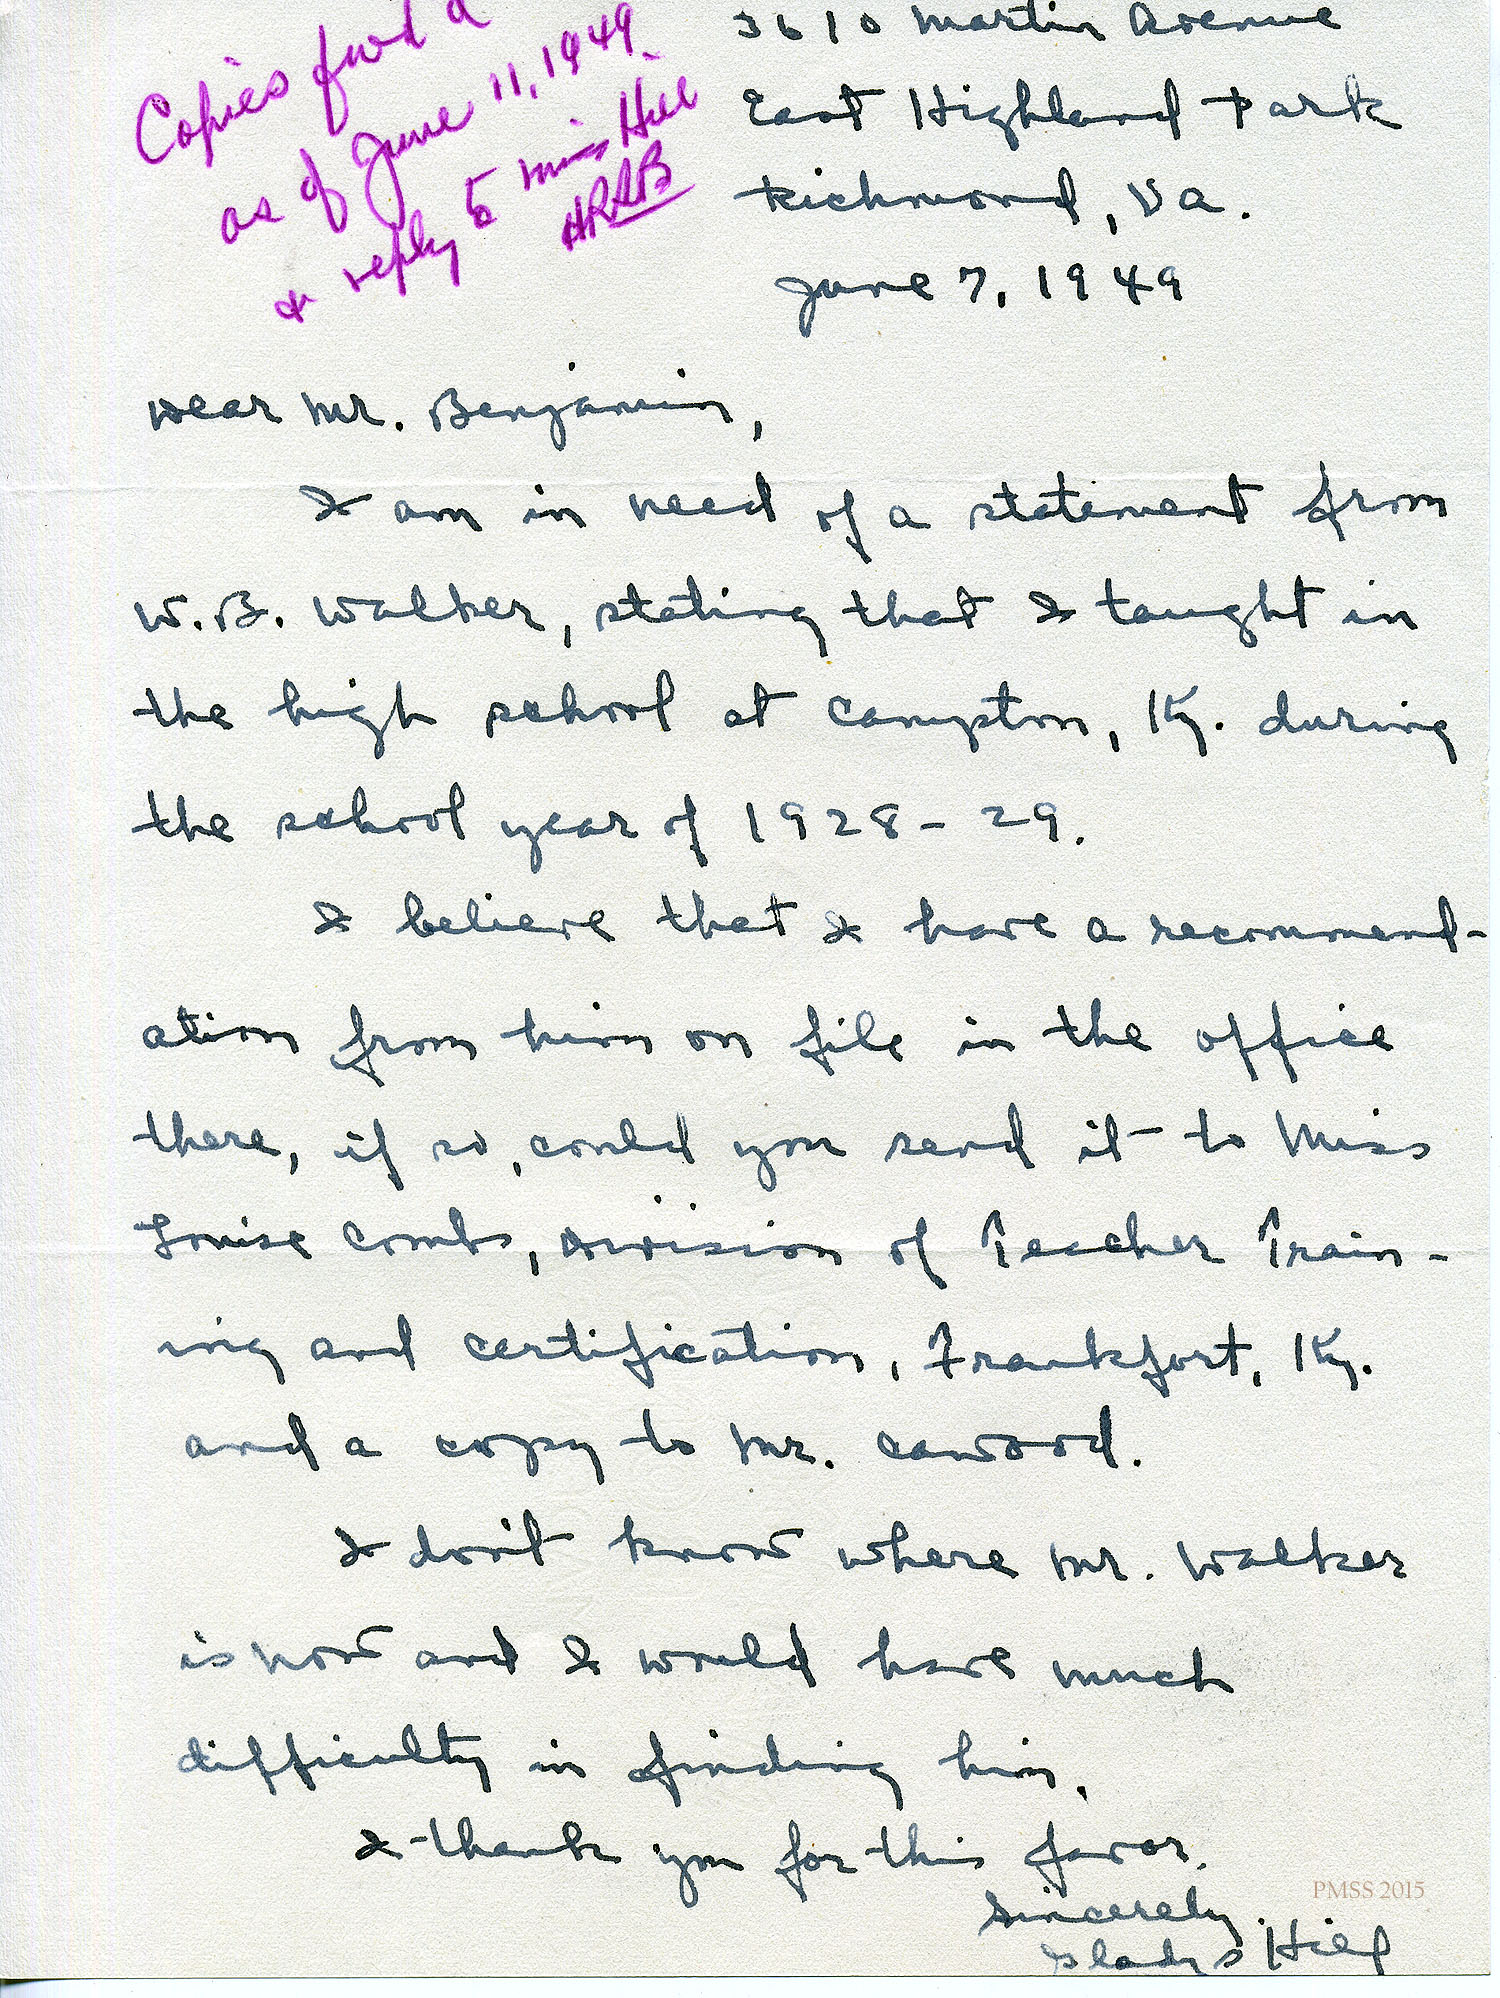 Copies fwd
as of June 11, 1949
& reply to Miss Hill
HRSB
3610 Martin Avenue
East Highland Park
Richmond, Va.
June 7, 1949
Dear Mr. Benjamin,
I am in need of a statement from
W. B. Walker, stating that I taught in
the high school at Campton, Ky. during
the school year of 1928-29.
I believe that I have a recommend-
ation from him on file in the office
there, if so, could you send it to Miss
Louise Combs, Division of Teacher Train-
ing and certification, Frankfort, Ky.
and a copy to Mr. Cawood.
I don't know where Mr. Walker
is now and I would have much
difficulty in finding him.
I thank you for this favor.
Sincerely,
Gladys Hill
PMSS 2015